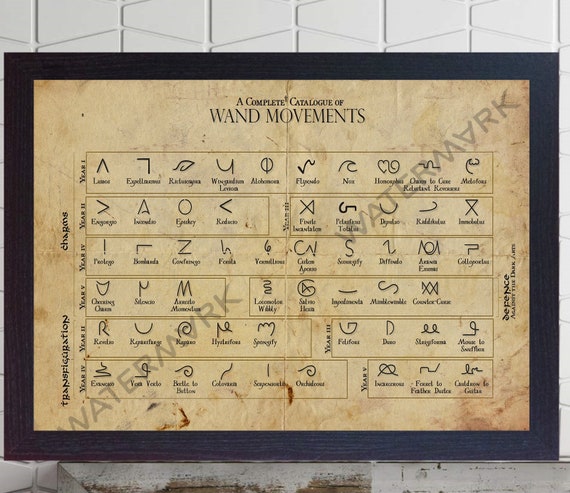 A Complete Catalogue of
WAND MOVEMENTS
Charms
Year I
Lumos Expelliarmus Rictusempra Wingardium Leviosa Alohomora Flipendo Nox Homorphus Charm to Cure Reluctant Reversers Melofors
Year II
Engorgio Incendio Episkey Reducio
Year III
Finite Incantatem Petrificus Totalus Depulso Riddikulus Immobulus
Year IV
Protego Bombarda Confringo Ferula Vermillious Cistem Aperio Scourgify Diffindo Exumai Colloportus
Year V
Cheering Charm Silencio Arresto Momentum Locomotor Wibbly Salvio Hexia Impedimenta Mimblewimble Counter-Curse
Defence
Against the Dark Arts
Transfiguration
Year II
Revelio Reparifarge Reparo Herbifors Spongify
Year III
Felifors Duro Mouse to Snuffbox
Year IV
Evanesco Vera Verto Beetle to Button Colovaria Serpensortia Orchideous
Year V
Incarcerous Ferret to Feather Duster Cauldron to Guitar
WATERMARK
WATERMARK
WATERMARK